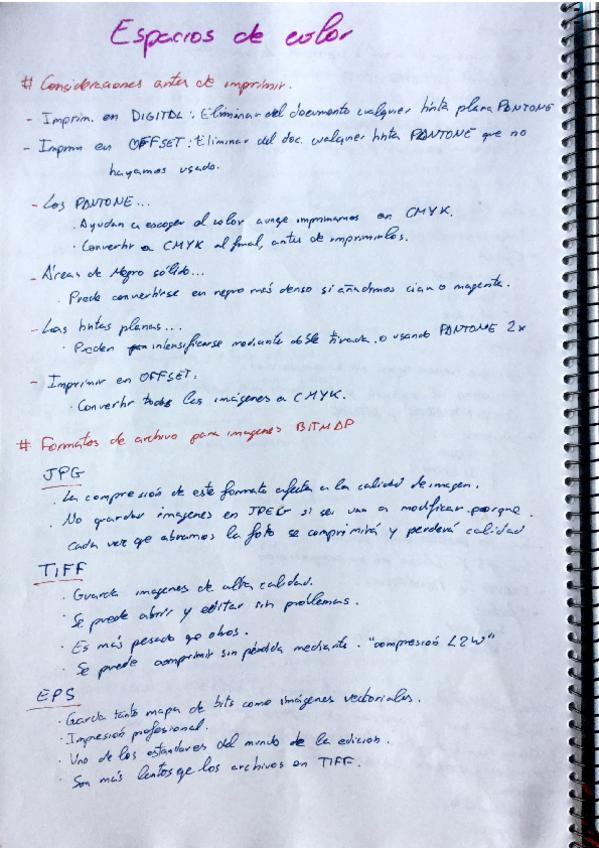 Espacios de color
# Consideraciones antes de imprimir.
- Imprim. en DIGITAL: Eliminar del documento cualquier tinta plana PANTONE
- Imprim en OFFSET: Eliminar del doc. cualquier tinta PANTONE que no
hayamos usado.
- Los PANTONE...
· Ayudan a escoger el color aunqe imprimamos en CMYK.
· Convertir a CMYK al final, antes de imprimirlos.
- Áreas de Negro sólido...
· Puede convertirse en negro más denso si añadimos cian o magenta.
- Las tintas planas...
· Pueden intensificarse mediante doble tirada o usando PANTONE 2x
- Imprimir en OFFSET.
· Convertir todas las imágenes a CMYK.
# Formatos de archivo para imagenes BITMAP
JPG
· La compresión de este formato afecta a la calidad de imagen.
· No guardar imagenes en JPEG si se van a modificar porque
cada vez qe abramos la foto se comprimirá y perderá calidad
TIFF
· Guarda imagenes de alta calidad.
· Se puede abrir y editar sin problemas.
· Es más pesado qe otros.
· Se puede comprimir sin pérdida mediante "compresió LZW"
EPS
· Garda tanto mapa de bits como imágenes vectoriales.
· Impresión profesional.
· Uno de los estandares del mundo de la edicion.
· Son más lentos qe los archivos en TIFF.